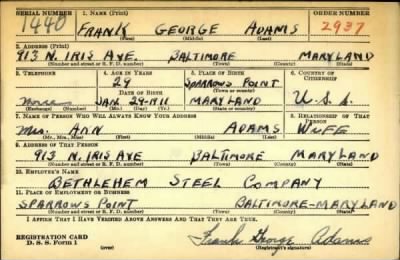 SERIAL NUMBER 1. NAME (Print) ORDER NUMBER
1440 FRANK GEORGE ADAMS 2937
(First) (Middle) (Last)
2. ADDRESS (Print)
913 N. IRIS AVE. BALTIMORE MARYLAND
(Number and street or R. F. D. number) (Town) (County) (State)
3. TELEPHONE 4. AGE IN YEARS 5. PLACE OF BIRTH 6. COUNTRY OF CITIZENSHIP
29 SPARROWS POINT
DATE OF BIRTH (Town or county)
None JAN. 29-1911 MARYLAND U. S. A.
(Exchange) (Number) (Mo.) (Day) (Yr.) (State or country)
7. NAME OF PERSON WHO WILL ALWAYS KNOW YOUR ADDRESS 8. RELATIONSHIP OF THAT PERSON
MRS. ANN ADAMS WIFE
(Mr., Mrs., Miss) (First) (Middle) (Last)
9. ADDRESS OF THAT PERSON
913 N. IRIS AVE BALTIMORE MARYLAND
(Number and street or R. F. D. number) (Town) (County) (State)
10. EMPLOYER'S NAME
BETHLEHEM STEEL COMPANY
11. PLACE OF EMPLOYMENT OR BUSINESS
SPARROWS POINT BALTIMORE-MARYLAND
(Number and street or R. F. D. number) (Town) (County) (State)
I AFFIRM THAT I HAVE VERIFIED ABOVE ANSWERS AND THAT THEY ARE TRUE.
REGISTRATION CARD
D. S. S. Form 1 (over) Frank George Adams
Registrant's signature